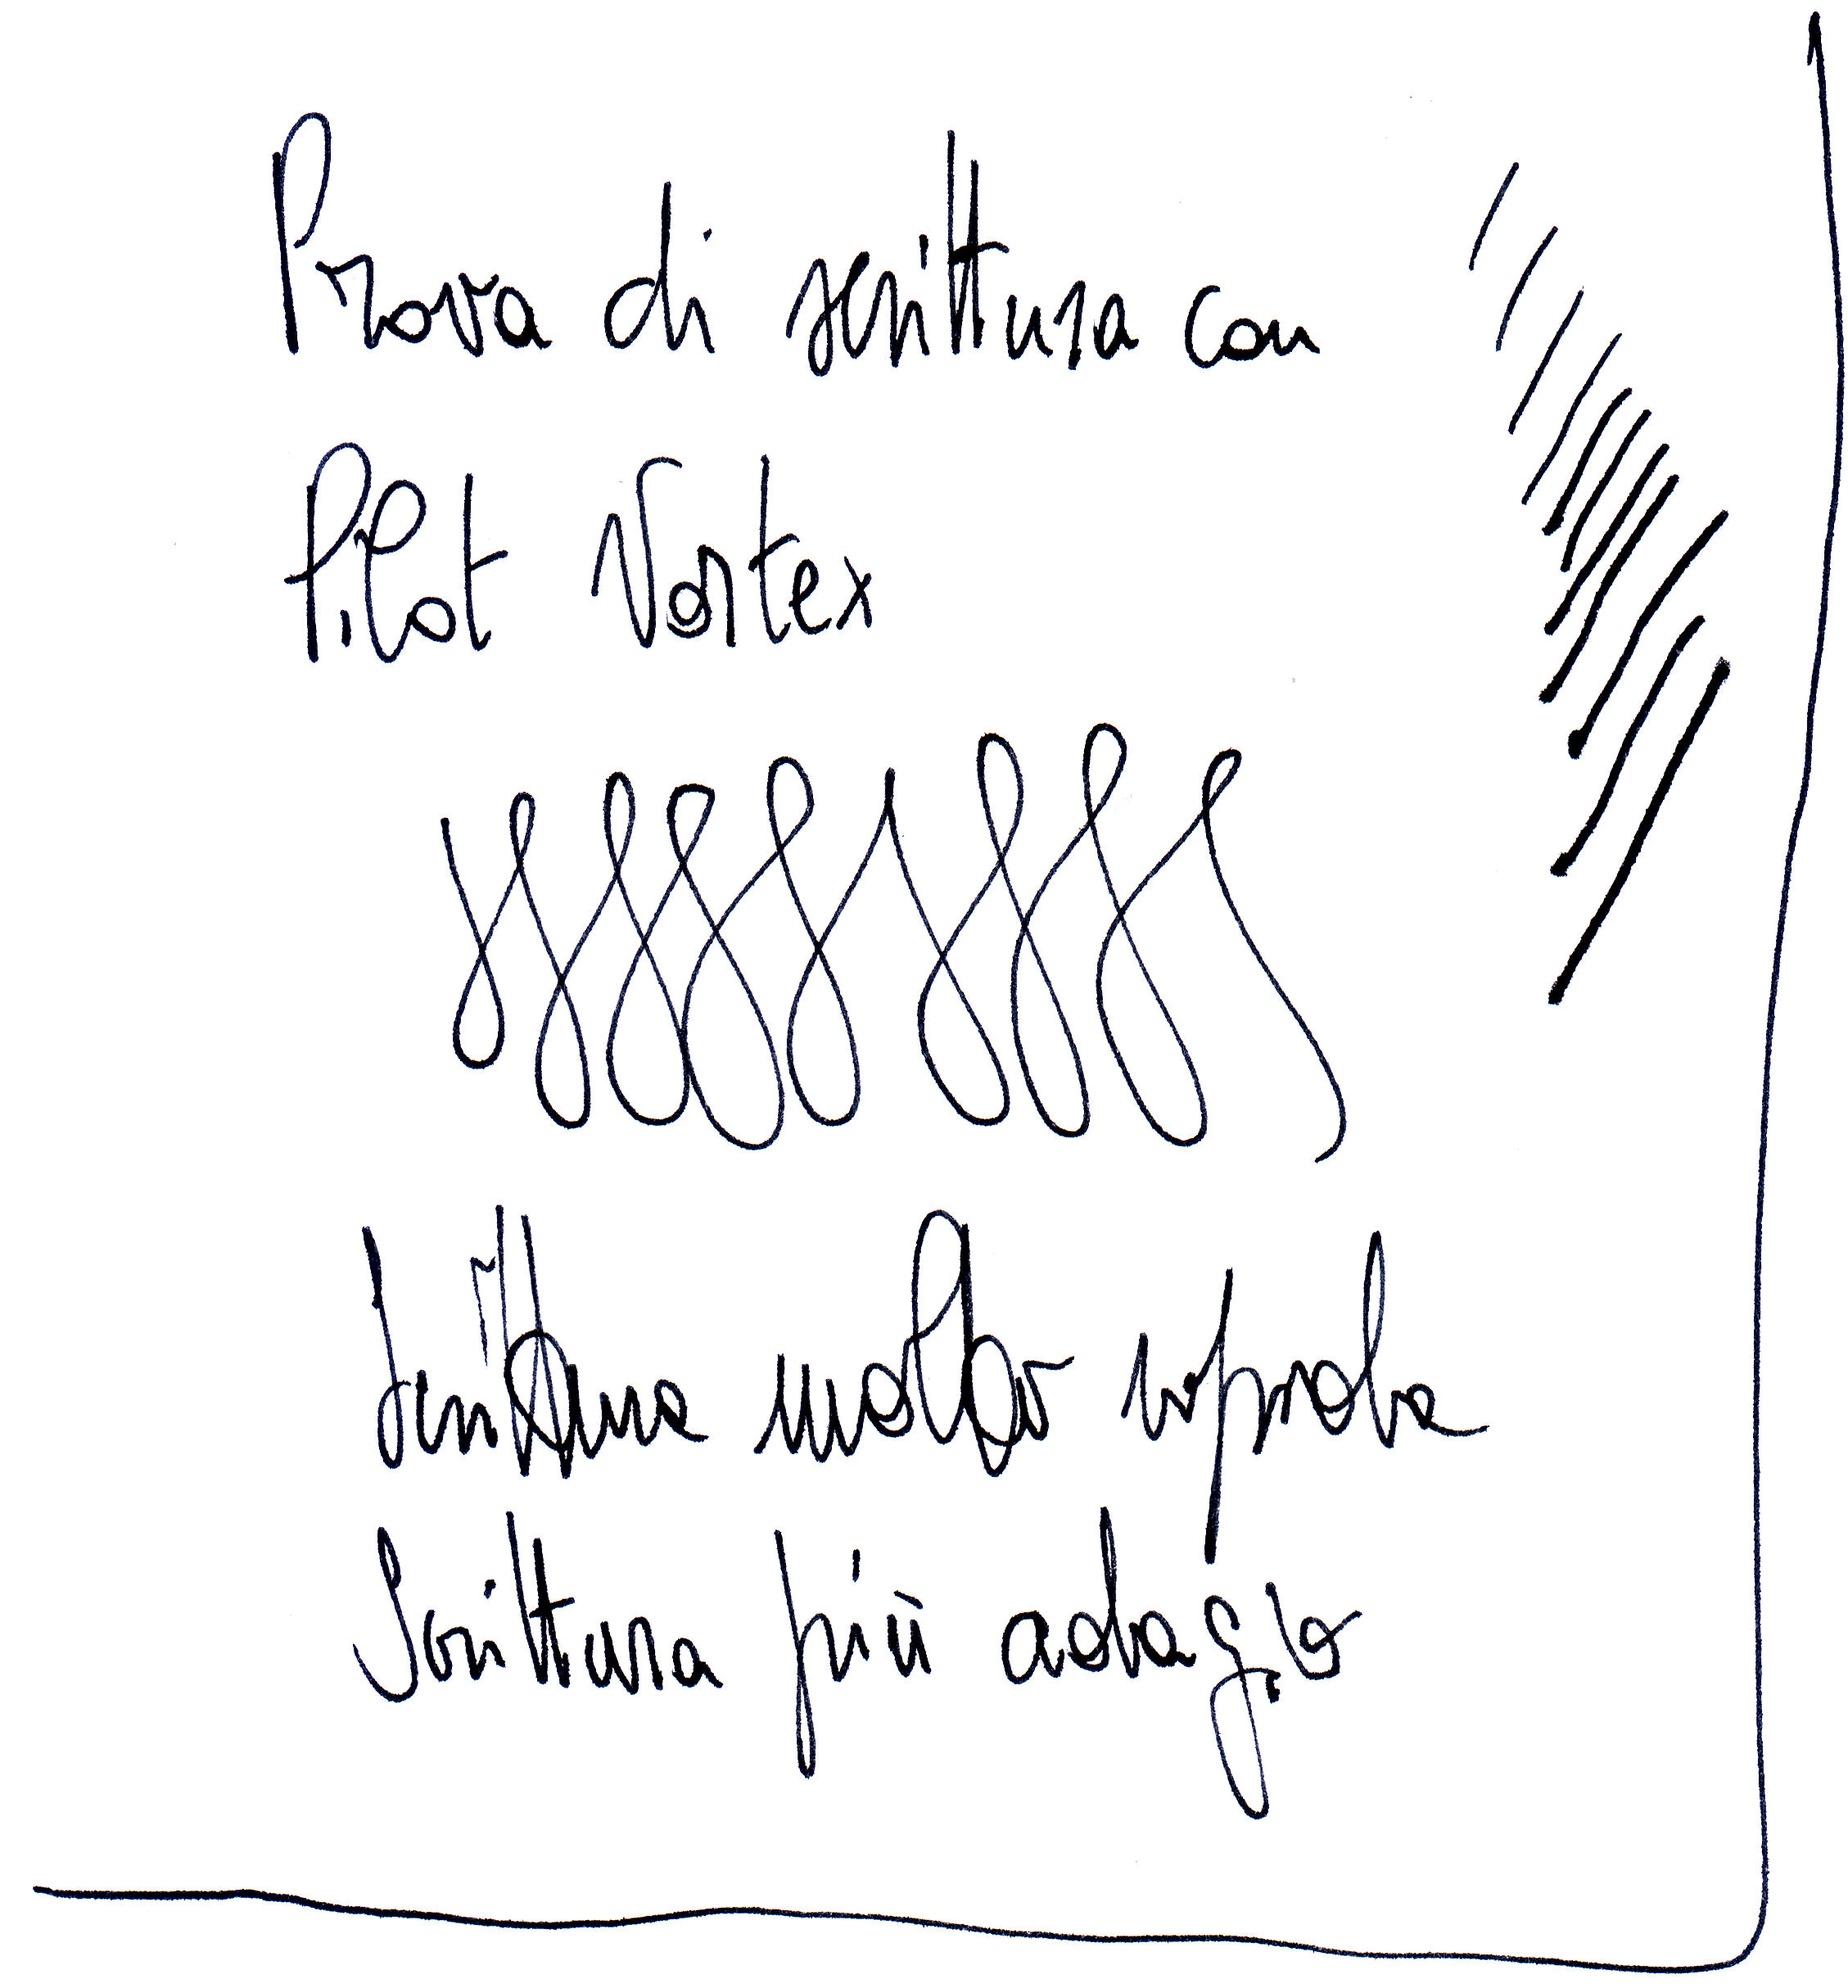 Prova di scrittura con
Pilot Vortex
Scrittura molto rapida
Scrittura più adagio